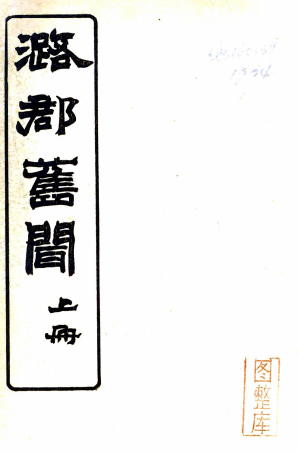 潞郡舊聞
上冊
图整库